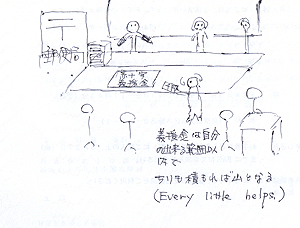 〒
郵便局
赤十字
義援金
義援金は自分
の出来る範囲以
内で
ちりも積もれば山となる
(Every little helps.)